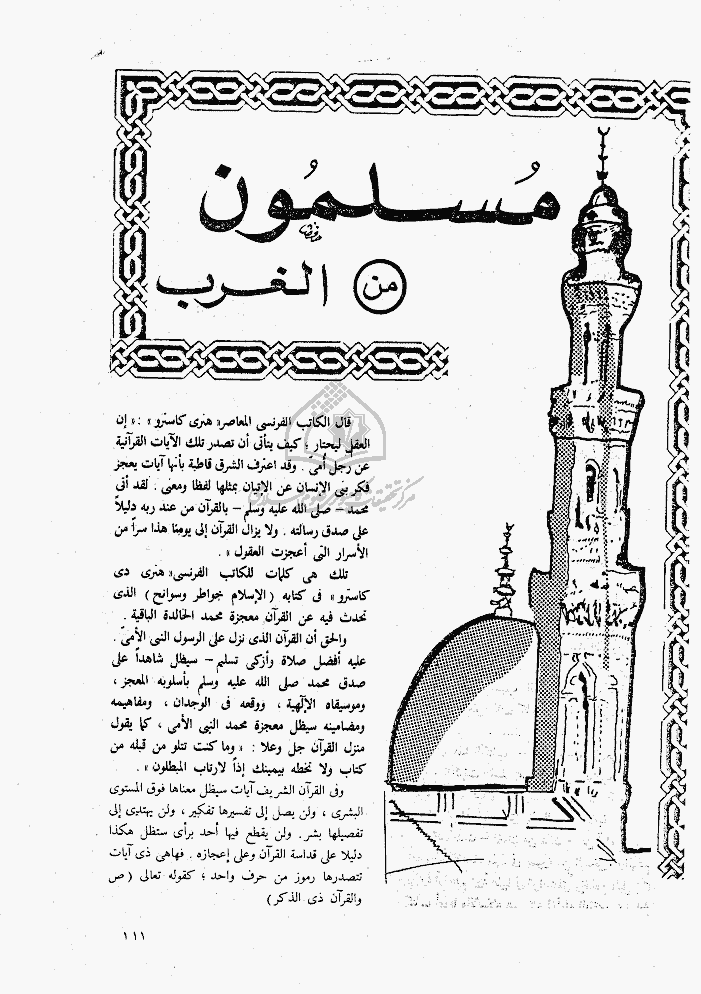 مُسلمُون
من الغرب
قال الكاتب الفرنسى المعاصر « هنرى كاسترو » : « إن
العقل ليحتار ؛ كيف يتأتى أن تصدر تلك الآيات القرآنية
عن رجل أمى . وقد اعترف الشرق قاطبة بأنها آيات يعجز
فكر بنى الإنسان عن الإتيان بمثلها لفظا ومعنى . لقد أتى
محمد – صلى الله عليه وسلم – بالقرآن من عند ربه دليلاً
على صدق رسالته . ولا يزال القرآن إلى يومنا هذا سراً من
الأسرار التى أعجزت العقول » .
تلك هى كلمات للكاتب الفرنسى « هنرى دى
كاسترو » فى كتابه ( الإسلام خواطر وسوانح ) الذى
تحدث فيه عن القرآن معجزة محمد الخالدة الباقية .
والحق أن القرآن الذى نزل على الرسول النبى الأمى .
عليه أفضل صلاة وأزكى تسليم – سيظل شاهداً على
صدق محمد صلى الله عليه وسلم بأسلوبه المعجز ،
وموسيقاه الإلهية ، ووقعه فى الوجدان ، ومفاهيمه
ومضامينه سيظل معجزة محمد النبى الأمى ، كما يقول
منزل القرآن جل وعلا : « وما كنت تتلو من قبله من
كتاب ولا تخطه بيمينك إذاً لارتاب المبطلون » .
وفى القرآن الشريف آيات سيظل معناها فوق المستوى
البشرى ، ولن يصل إلى تفسيرها تفكير ، ولن يهتدى إلى
تفصيلها بشر . ولن يقطع فيها أحد برأى ستظل هكذا
دليلا على قداسة القرآن وعلى إعجازه . فهاهى ذى آيات
تتصدرها رموز من حرف واحد ؛ كقوله تعالى ( ص
والقرآن ذى الذكر )
١١١